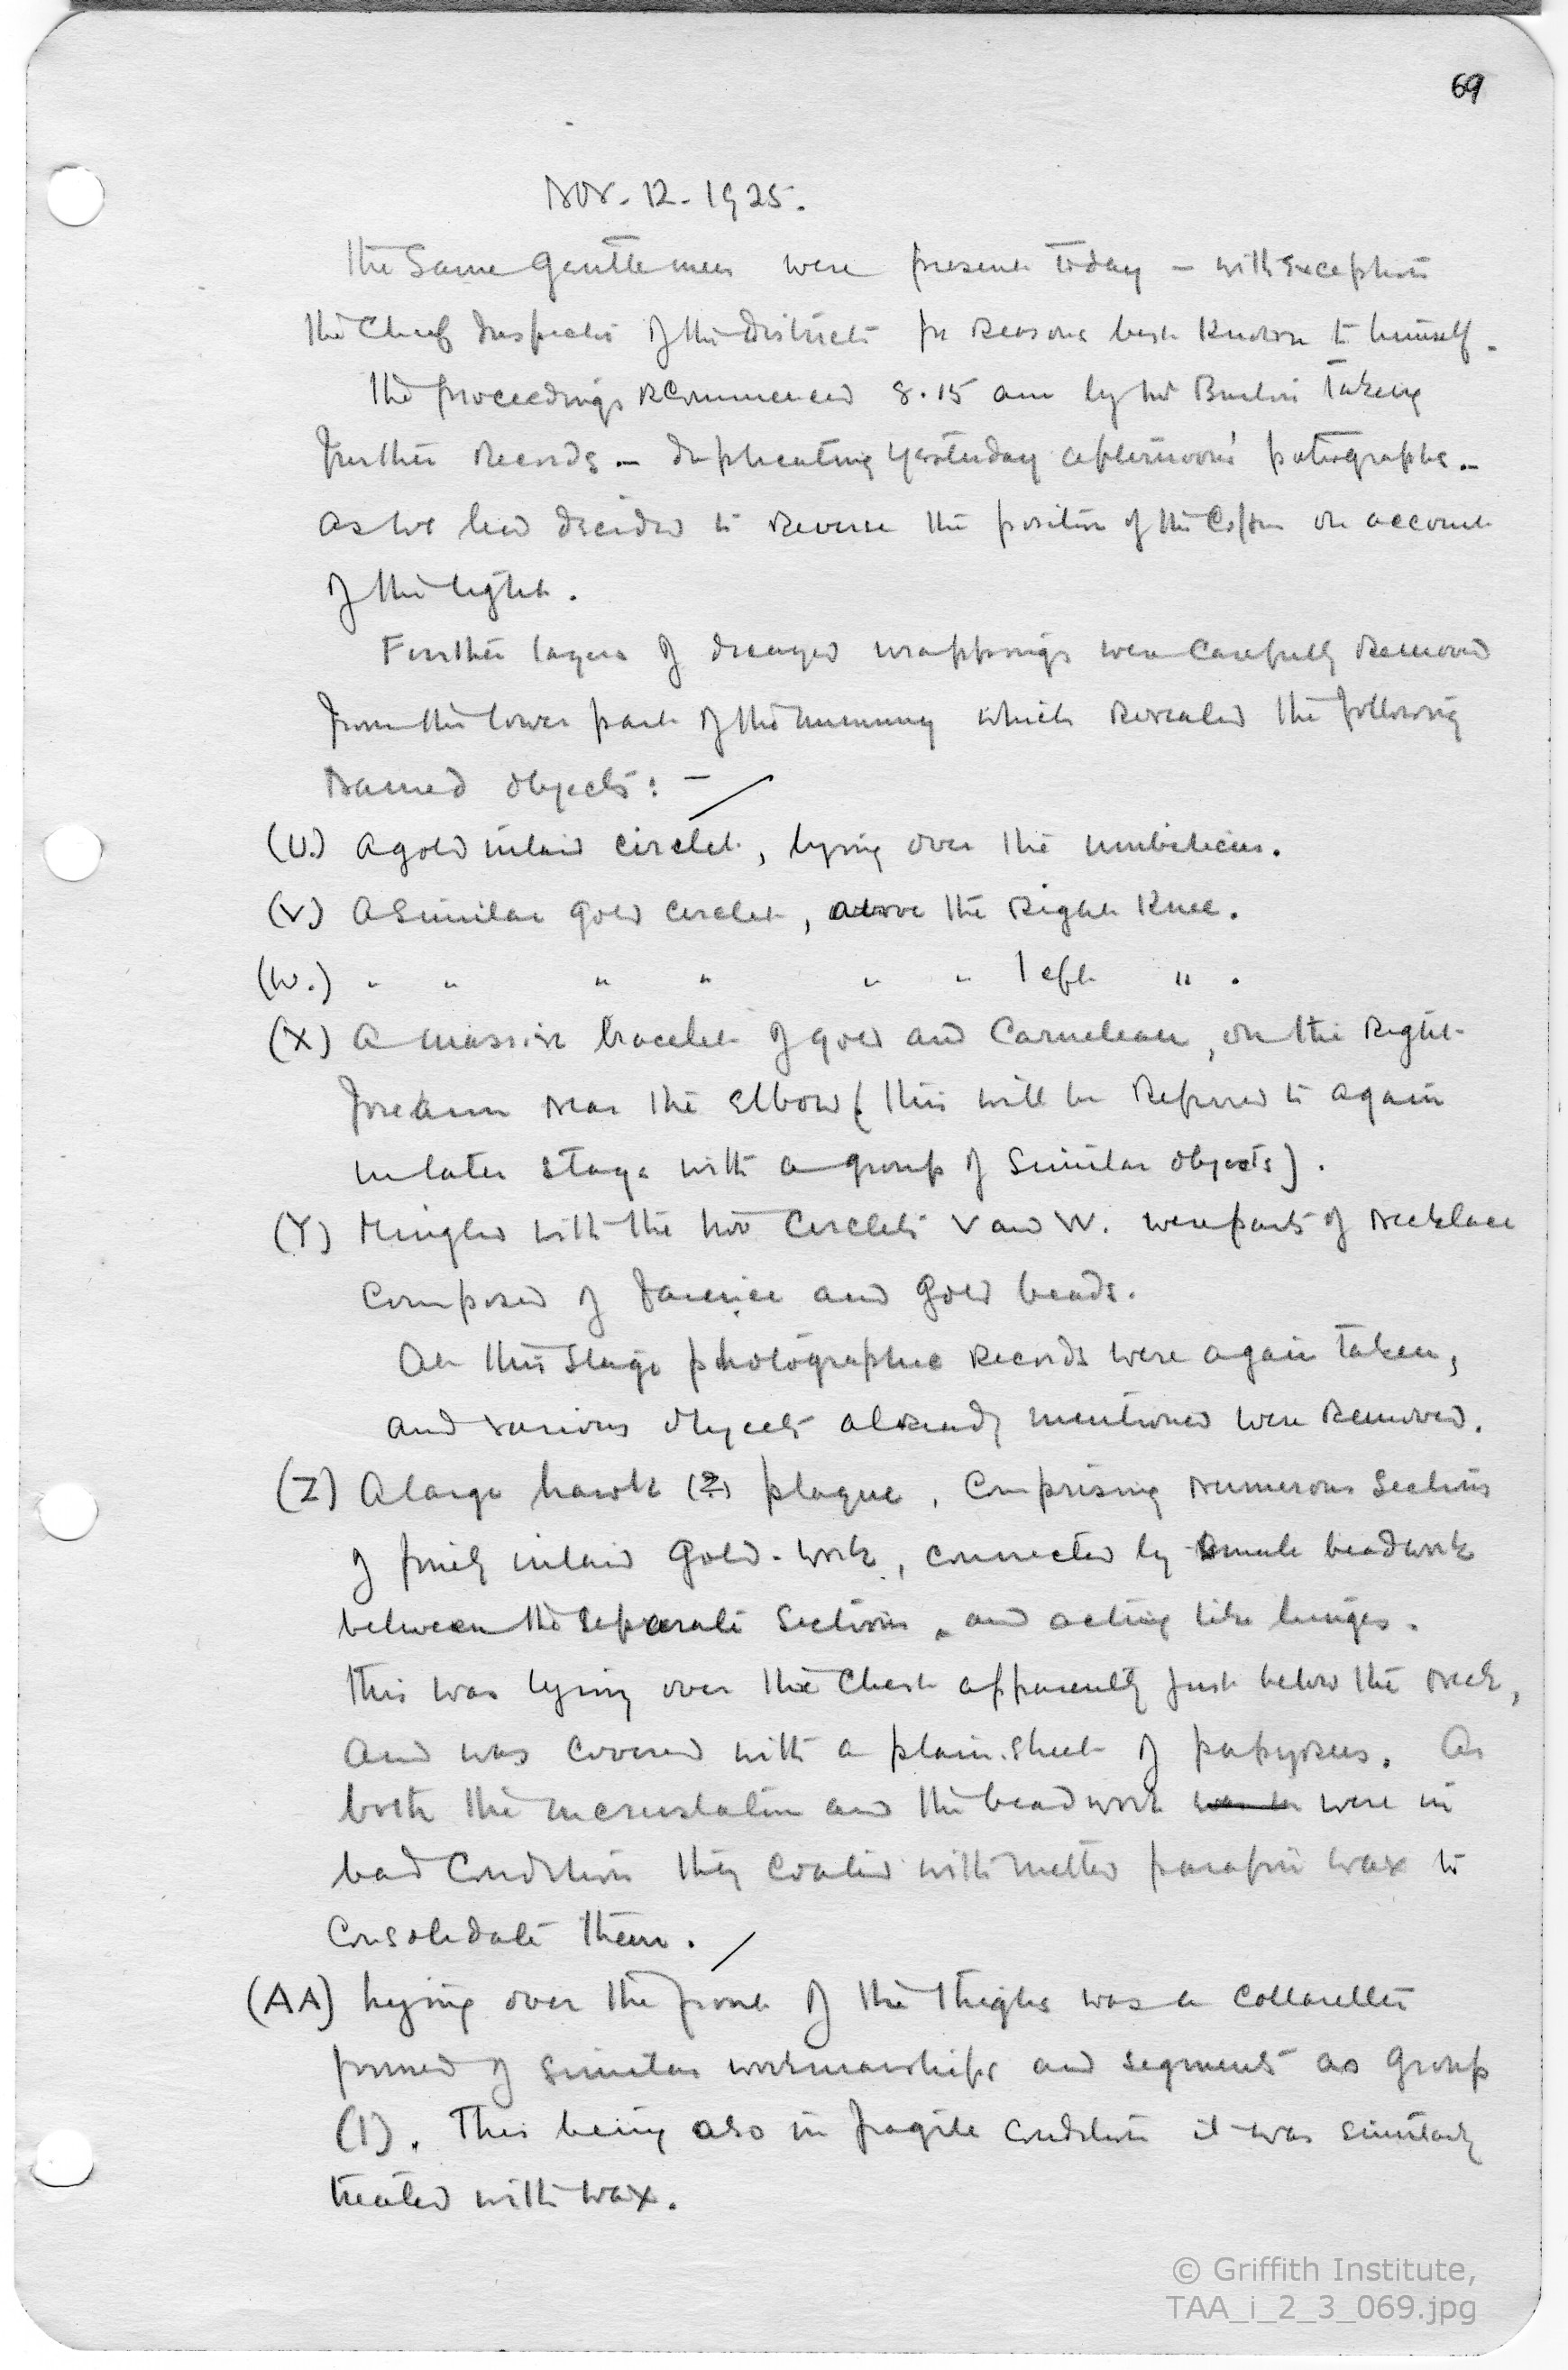 69
Nov. 12. 1925.
The same gentlemen were present today – with exception
the Chief Inspector of the Districts for reasons best known to himself.
The proceedings recommenced 8.15 am by Mr Burton taking
further records – duplicating yesterday afternoon's potographs –
as we had decided to reverse the position of the coffin on account
of the light.
Further layers of decayed wrappings were carefully removed
from the lower part of the mummy which revealed the following
named objects: –
(U.) A gold inlaid circlet, lying over the umbilicus.
(V) A similar gold circlet, above the right knee.
(W.) " " " " " " left " .
(X) A massive bracelet of gold and carnelean, on the right
forearm near the elbow (this will be referred to again
in later stage with a group of similar objects).
(Y) Mingled with the two circlets V and W. were parts of necklace
composed of faience and gold beads.
At this stage photographic records were again taken,
and various objects already mentioned were removed.
(Z) A large hawk (?) plaque, comprising numerous sections
of finely inlaid gold-work, connected by minute beadwork
between the separate sections, and acting like hinges.
This was lying over the chest apparently just below the neck,
and was covered with a plain sheet of papyrus. As
both the incrustation and the beadwork were in
bad condition they coated with melted parafin wax to
consolidate them.
(AA) Lying over the front of the thighs was a collarette
formed of similar workmanship and segments as group
(I). This being also in fragile condition it was similarly
treated with wax.
© Griffith Institute,
TAA_i_2_3_069.jpg